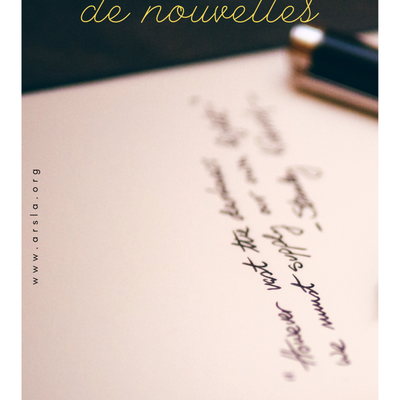 de nouvelles
www.arsla.org
"However vast the darkness
we must supply our own light"
- Stanley